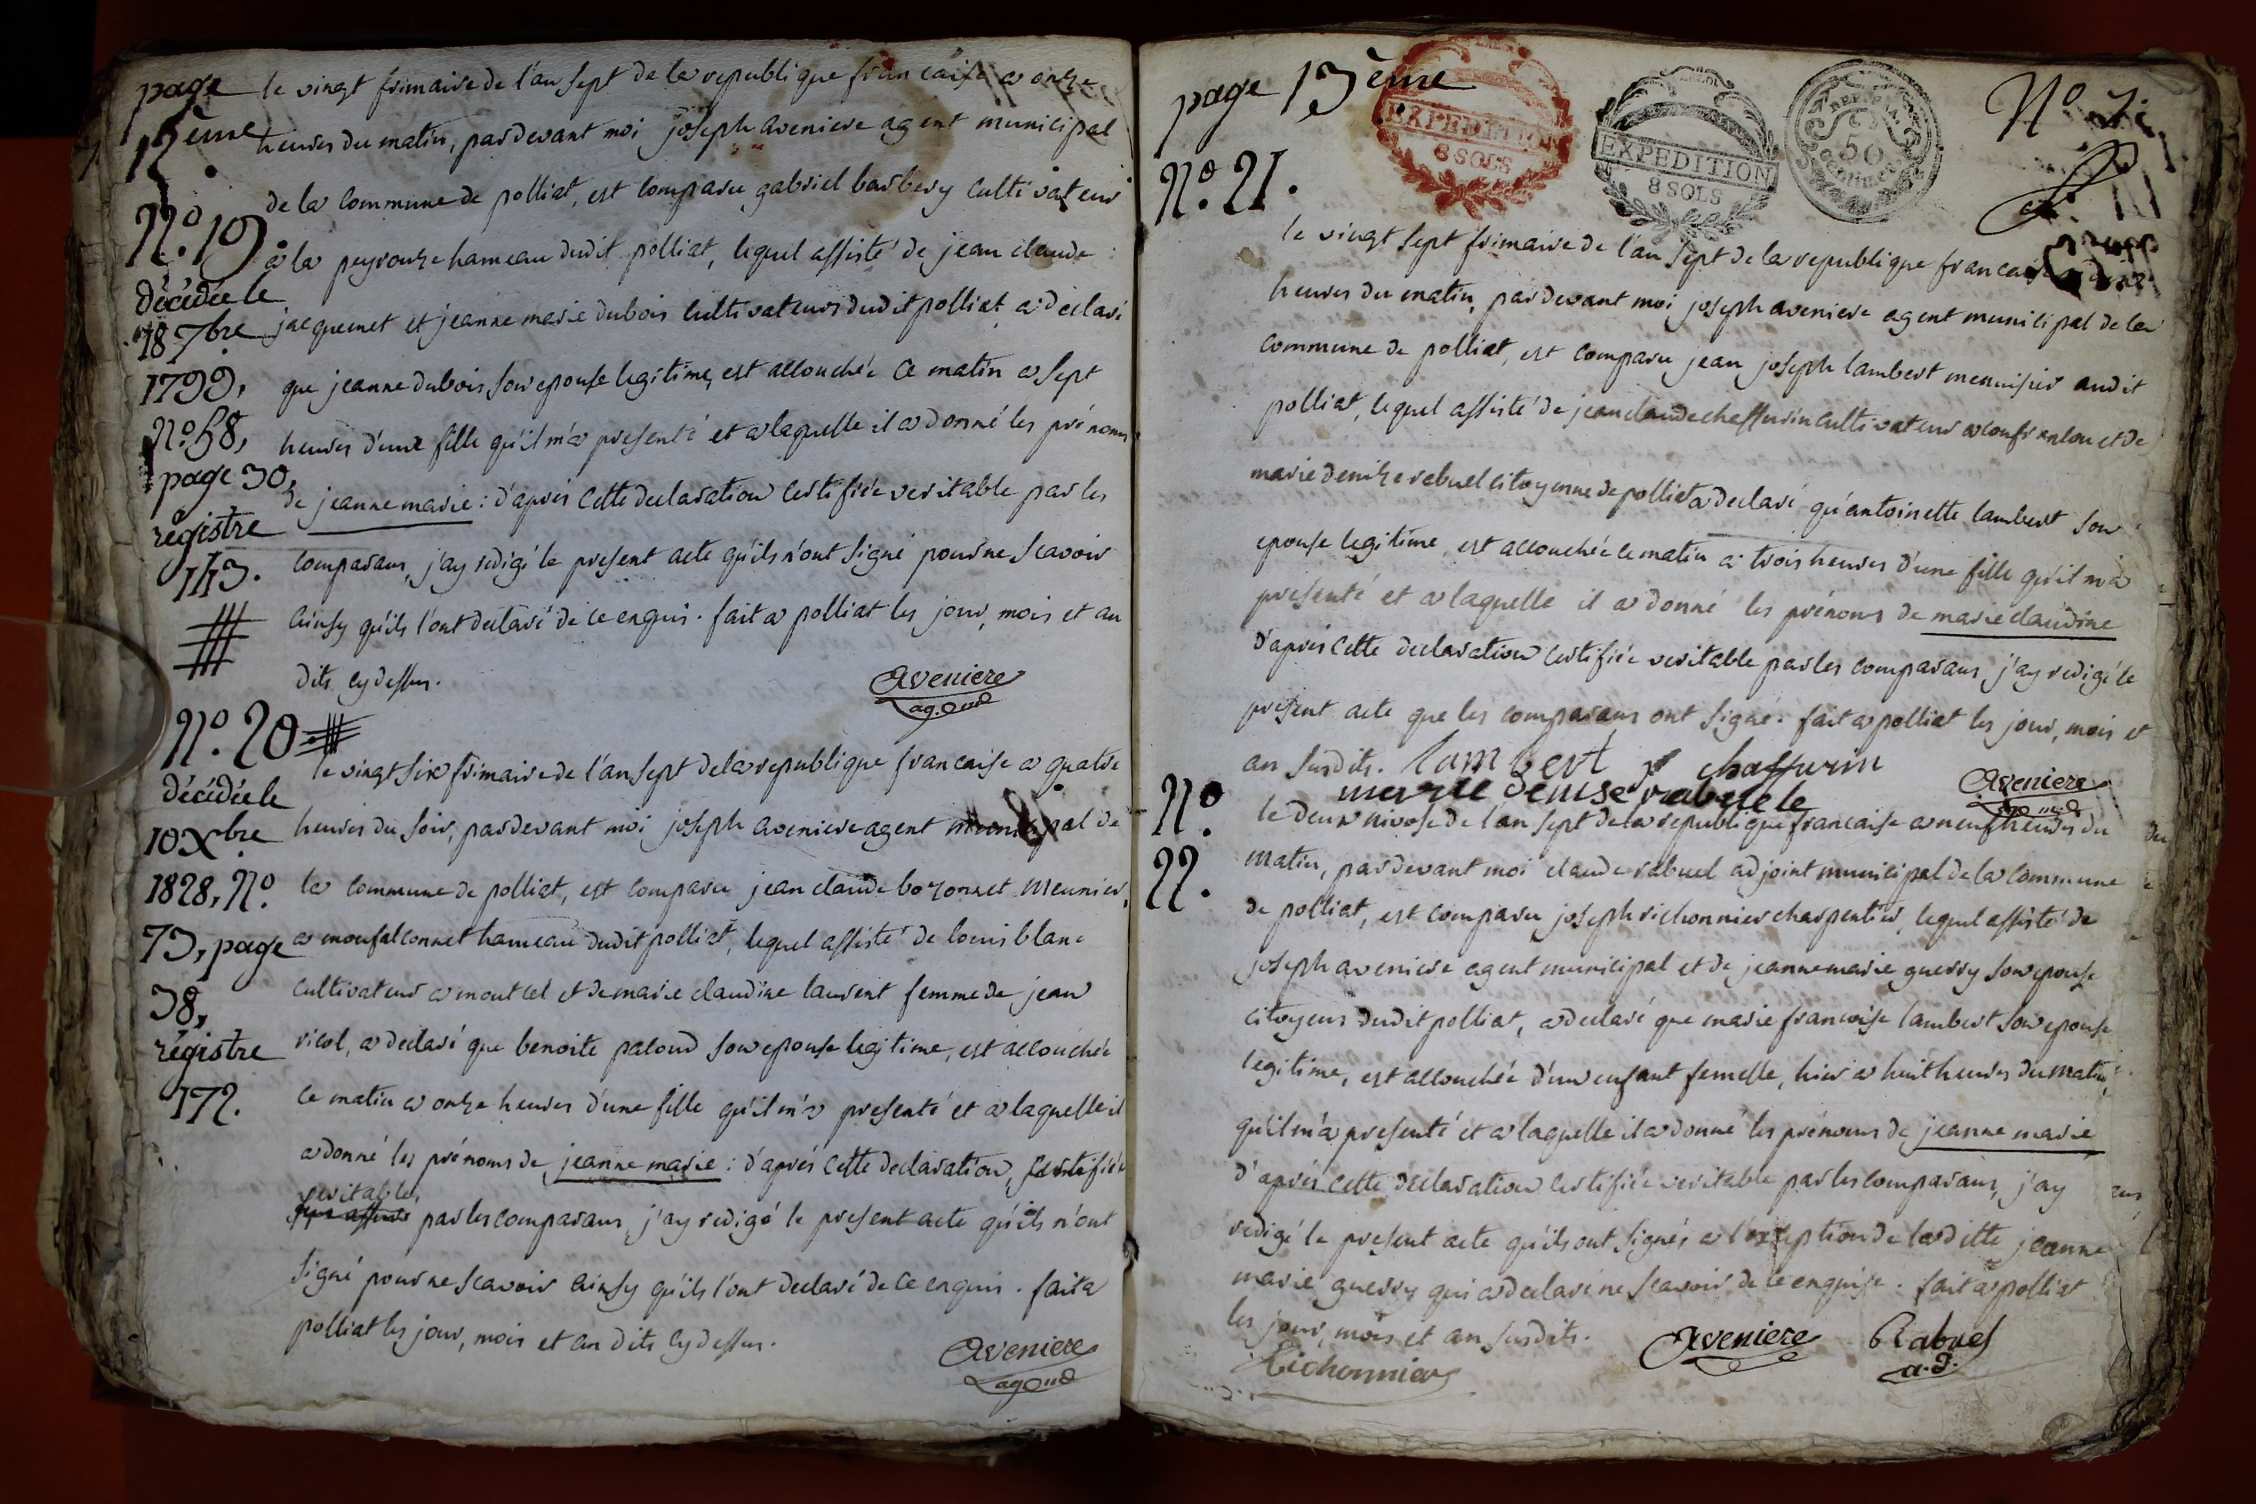 page
12ème
le vingt frimaire de l'an sept de la republique francaise a onze
heures du matin, pardevant moi joseph aveniere agent municipal
de la commune de polliat, est comparu gabriel barbery cultivateur
N.º 19
à la peyrouze hameau dudit polliat, lequel assisté de jean claude
décédée le
18 7bre
1799,
N.º 58,
page 30,
régistre
143.
jacquemet et jeanne marie dubois cultivateurs dudit polliat a déclaré
que jeanne dubois, son epouse legitime, est accouchée ce matin a sept
heures d'une fille qu'il m'a presenté et a laquelle il a donné les prénoms
de jeanne marie : d'après cette declaration certifiée veritable par les
comparans, j'ay redigé le present acte qu'ils n'ont signé pour ne scavoir
ainsy qu'ils l'ont declaré de ce enquis. fait a polliat les jour, mois et an
dits cy dessus.
Aveniere
N.º 20.
décédée le
10 Xbre
1828, N.º
73, page
38,
régistre
172.
le vingt six frimaire de l'an sept de la republique francaise a quatre
heures du soir, pardevant moi joseph aveniere agent municipal de
la commune de polliat, est comparu jean claude bozonnet meunier,
a monfalconnet hameau dudit polliat, lequel assisté de louis blanc
cultivateur a montcel et de marie claudine laurent femme de jean
ricol, a declaré que benoite paloud son epouse legitime, est accouchée
ce matin a onze heures d'une fille qu'il m'a presenté et a laquelle il
a donné les prénoms de jeanne marie : d'après cette declaration, certifiée
veritable,
par les comparans, j'ay redigé le present acte qu'ils n'ont
signé pour ne scavoir ainsy qu'ils l'ont declaré de ce enquis. fait a
polliat les jour, mois et an dits cy dessus.
Aveniere
page 13ème
EXPEDITION
8 SOLS
EXPEDITION
8 SOLS
50
centimes
Nº 7.
N.º 21.
le vingt sept frimaire de l'an sept de la republique francaise
heures du matin, pardevant moi joseph aveniere agent municipal de la
commune de polliat, est comparu jean joseph lambert menuisier audit
polliat, lequel assisté de jean claude chaffurin cultivateur a confranlon et de
marie denize rabuel citoyenne de polliat a declaré qu'antoinette lambert son
epouse legitime, est accouchée ce matin a trois heures d'une fille qu'il m'a
presenté et a laquelle il a donné les prénoms de marie claudine
d'après cette declaration certifiée veritable par les comparans, j'ay redigé le
présent acte que les comparans ont signé. fait a polliat les jour, mois et
an susdits. lambert chaffurin
marie denise rabuele
Aveniere
N.º
22.
le deux nivose de l'an sept de la republique francaise a neuf heures du
matin, pardevant moi claude rabuel adjoint municipal de la commune
de polliat, est comparu joseph richonnier charpentier, lequel assisté de
joseph aveniere agent municipal et de jeanne marie guerry son epouse
citoyens dudit polliat, a declaré que marie francoise lambert son epouse
legitime, est accouchée d'un enfant femelle, hier a huit heures du matin,
qu'il m'a presenté et a laquelle il a donné les prénoms de jeanne marie
d'après cette declaration certifiée veritable par les comparans, j'ay
redigé le present acte qu'ils ont signés a l'exception de ladite jeanne
marie guerry qui a declaré ne scavoir de ce enquise. fait a polliat
les jour, mois et an susdits.
Aveniere Rabuel
a.d.
Richonnier